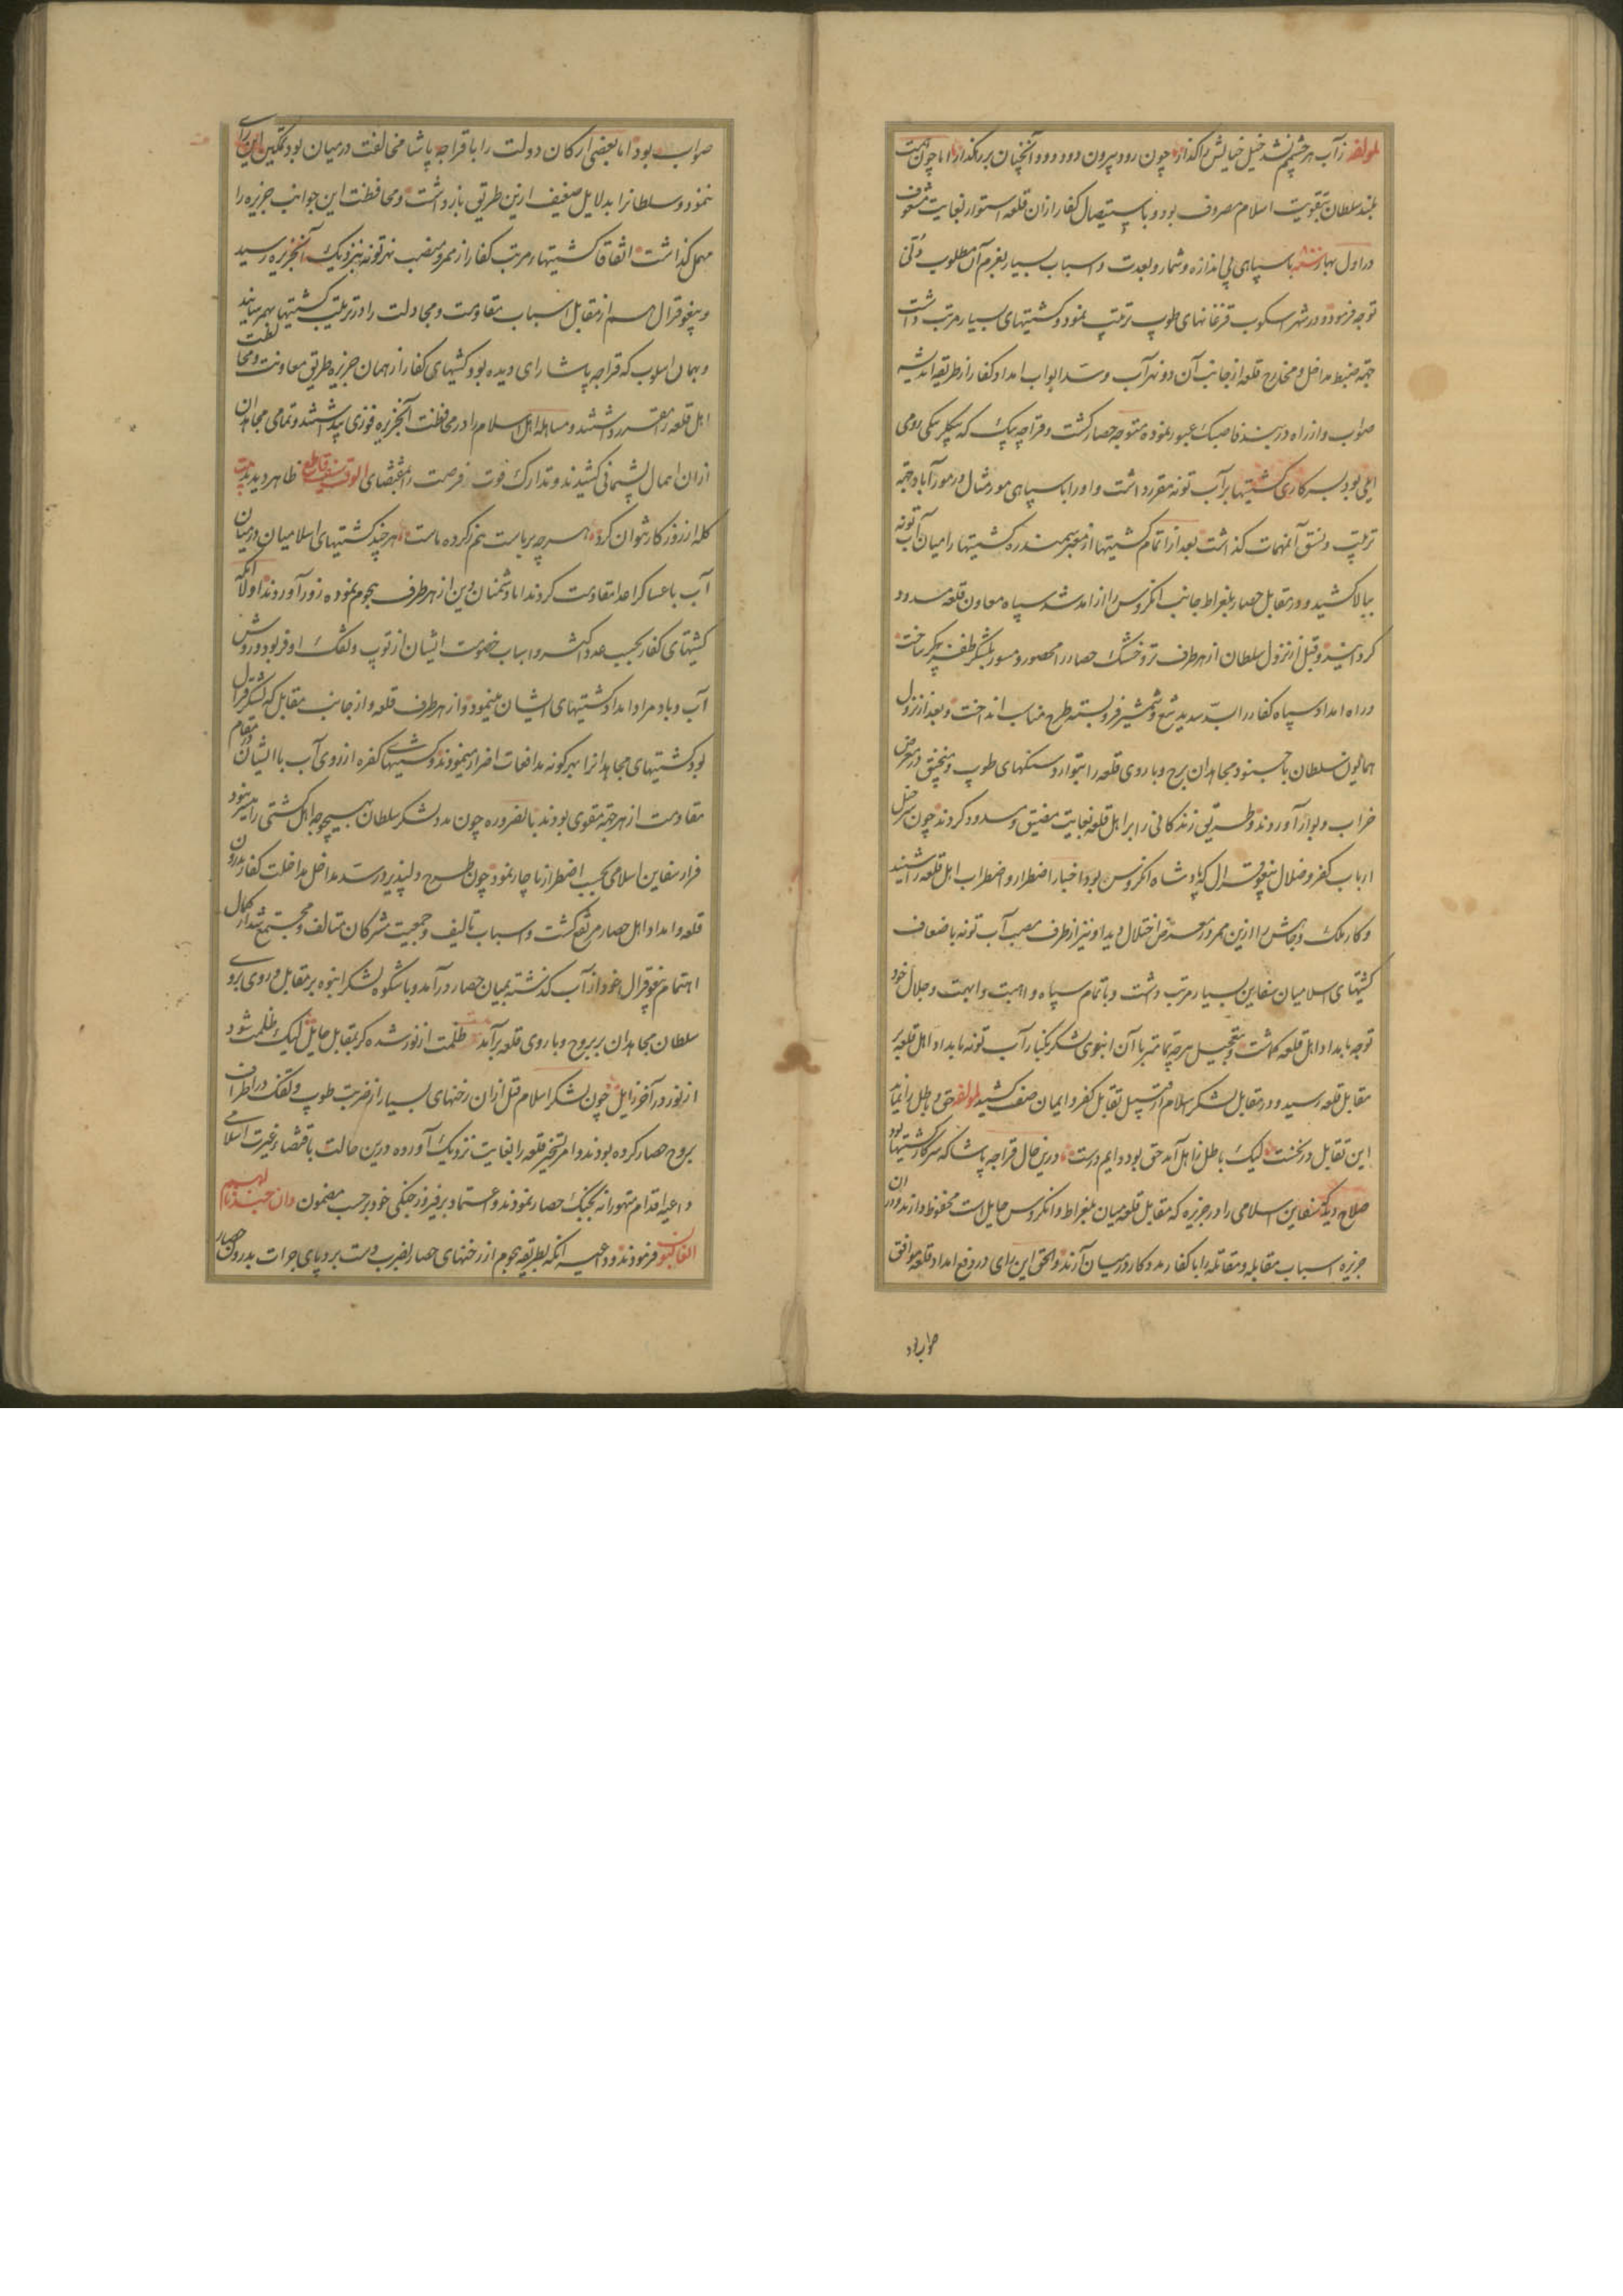 لمولفه زآب هر چشم نشد خیل خیالش را گذار چون رود بیرون دود رود و آنچنان بر رگذار اما چون همت
بلند سلطان بتقویت اسلام مصروف بود و باستیصال کفار ازان قلعه استوار بغایت مشعوف
در اول بهار سنه با سپاهی بی اندازه و شمار و بعدت و اسباب بسیار بعزم آن مطلوب دلی
توجه فرمود و در شهر اسکوب قزغانهای طوپ ترتیب نمود و کشتیهای بسیار مرتب داشت
جهة ضبط مداخل و مخارج قلعه از جانب آن دو نهر آب و سد ابواب امداد کفار از طریقه اندیشه
صواب و از راه دربند عبور نموده متوجه حصار گشت و قراجه بیک که بیکلربیکی روم
ایلی بود بسر کاری کشتیها بر آب تونه مقرر داشت و او را با سپاهی مور مثال در موراآباد جهة
ترتیب و نسق آن مهمات گذاشت بعد از اتمام کشتیها از معبر سمندره کشتیها را میان آب تونه
ببالا کشید و در مقابل حصار بلغراط جانب انکروس را از آمد شد سپاه معاون قلعه مسدود
گردانید و قبل از نزول سلطان از هر طرف تر و خشک حصار را محصور و مسور بلشکر ظفر پیکر ساخت
و راه امداد سپاه کفار را بسد سدید تیغ و شمشیر فرو بسته طرح مناسب انداخت و بعد از نزول
همایون سلطان با جنود مجاهدان برج و باروی قلعه را بتوارد سنگهای طوپ و منجنیق در معرض
خراب و بوار آوردند و طریق زندگانی را بر اهل قلعه بغایت مضیق و مسدود کردند چون سر خیل
ارباب کفر و ضلال ینقو قرال که پادشاه انکروس بود اخبار اضطرار و اضطراب اهل قلعه را شنید
و کار ملک و جاهش را ازین ممر در معرض اختلال دید او نیز از طرف مصب آب تونه باضعاف
کشتیهای اسلامیان سفاین بسیار مرتب داشت و با تمام سپاه و اهبت و ابهت و جلال خود
توجه بامداد اهل قلعه گماشت و بتعجیل هر چه تمامتر با آن انبوی لشکر بکنار آب تونه بامداد اهل قلعه بر
مقابل قلعه رسید و در مقابل لشکر اسلام از قبیل تقابل کفر و ایمان صف کشید لمولفه حق و باطل را نماید
این تقابل در نخست لیک باطل زاهل آمد حق بود دایم درست درین حال قراجه پاشا که سرکار کشتیها بود
صلاح دید که سفاین اسلامی را در جزیره که مقابل قلعه میان بلغراط و انکروس حایل است محفوظ دارند و در ان
جزیره اسباب مقابله و مقاتله را با کفار مدد کار در میان آرند و الحق این رای در دفع امداد قلعه موافق
صواب بود
صواب بود اما بعضی ارکان دولت را با قراجه پاشا مخالفت در میان بود تمکین این رای
ننمود و سلطانرا بدلایل ضعیف ازین طریق باز داشت و محافظت این جوانب جزیره را
مهمل گذاشت اتفاقا کشتیهاء مرتب کفار از ممر و مصب نهر تونه بنزدیک آنجزیره رسید
و ینقو قرال هم از مقابل اسباب مقاومت و مجادلت را در ترتیب کشتیها بهم رسانید
و بهمان اسلوب که قراجه پاشا رای دیده بود کشتیهای کفار از همان جزیره طریق معاونت و محافظت
اهل قلعه را مقرر داشتند و مساهله اهل اسلام را در محافظت آنجزیره فوزی پنداشتند و تمامی مجاهدان
ازان اهمال پشیمانی کشیدند و تدارک فوت فرصت را بمقتضای الوقت سیف قاطع ظاهر دیدند بیت
گله از روزگار نتوان کرد هر چه بر ماست هم ز کرده ماست هر چند کشتیهای اسلامیان در میان
آب با عساکر اعدا مقاومت کردند اما دشمنان دین از هر طرف هجوم نموده زور آوردند اولا آنکه
کشتیهای کفار بحسب عدد اکثر و اسباب خصومت ایشان از توپ و تفنک اوفر بود و روش
آب و باد مراد امداد کشتیهای ایشان مینمود و از هر طرف قلعه و از جانب مقابل که لشکر قرال
بود کشتیهای مجاهدانرا بهر گونه مدافعات اضرار مینمودند و کشتیهای کفره از روی آب با ایشان در مقام
مقاومت از هر جهة مقوی بودند بالضروره چون مدد لشکر سلطان بهیچوجه اهل کشتی را میسر نبود
فرار سفاین اسلامی بحسب اضطرار ناچار نمود چون طرح دلپذیر در سد مداخل مداخلت کفار بدرون
قلعه و امداد اهل حصار مرتفع گشت و اسباب تالیف و جمعیت مشرکان متالف و مجتمع شد از کمال
اهتمام ینقو قرال خود از آب گذشته بمیان حصار در آمد و با شکوه لشکر انبوه بر مقابل و روی بروی
سلطان مجاهدان ببروج و باروی قلعه بر آمد ظلمت از نور شده گر بمقابل حایل لیک ظلمت شود
از نور در آخر زایل چون لشکر اسلام قبل ازان رخنهای بسیار از ضربت طوپ و تفنک در اطراف
بروج حصار کرده بودند و امر تسخیر قلعه را بغایت نزدیک آورده درین حالت باقتضاء غیرت اسلامی
داعیه اقدام متهورانه بجنگ حصار نمودند و اعتماد بر فیروز جنگی خود بر حسب مضمون وان جندنا لهم
الغالبون فرمودند و داعیه آنکه بطریقه هجوم از رخنهای حصار بضرب دست برد پای جرات بدرون حصار